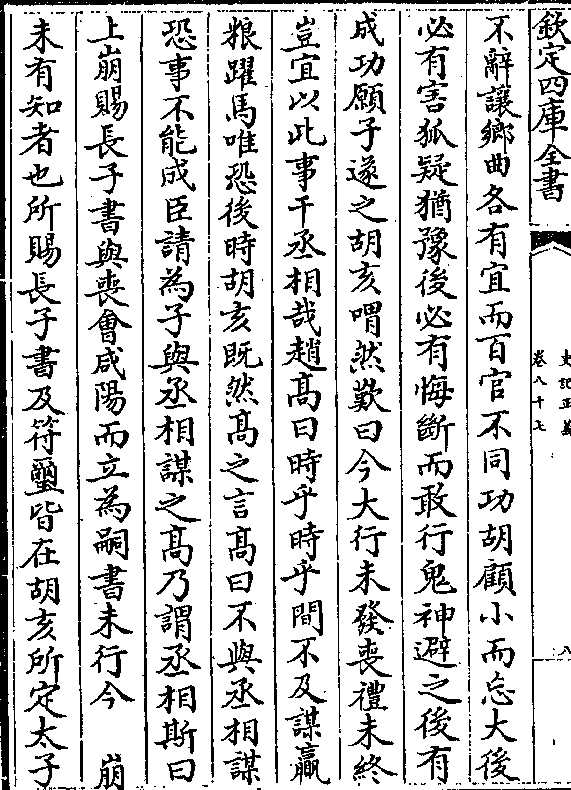 欽定四庫全書
史記正義
卷八十七
八
不辭讓鄉曲各有宜而百官不同功胡顧小而忘大後
必有害狐疑猶豫後必有悔斷而敢行鬼神避之後有
成功願子遂之胡亥喟然歎曰今大行未發喪禮未終
豈宜以此事干丞相哉趙髙曰時乎時乎間不及謀贏
粮躍馬唯恐後時胡亥既然髙之言髙曰不與丞相謀
恐事不能成臣請為子與丞相謀之髙乃謂丞相斯曰
上崩賜長子書與喪會咸陽而立為嗣書未行今　崩
未有知者也所賜長子書及符璽皆在胡亥所定太子